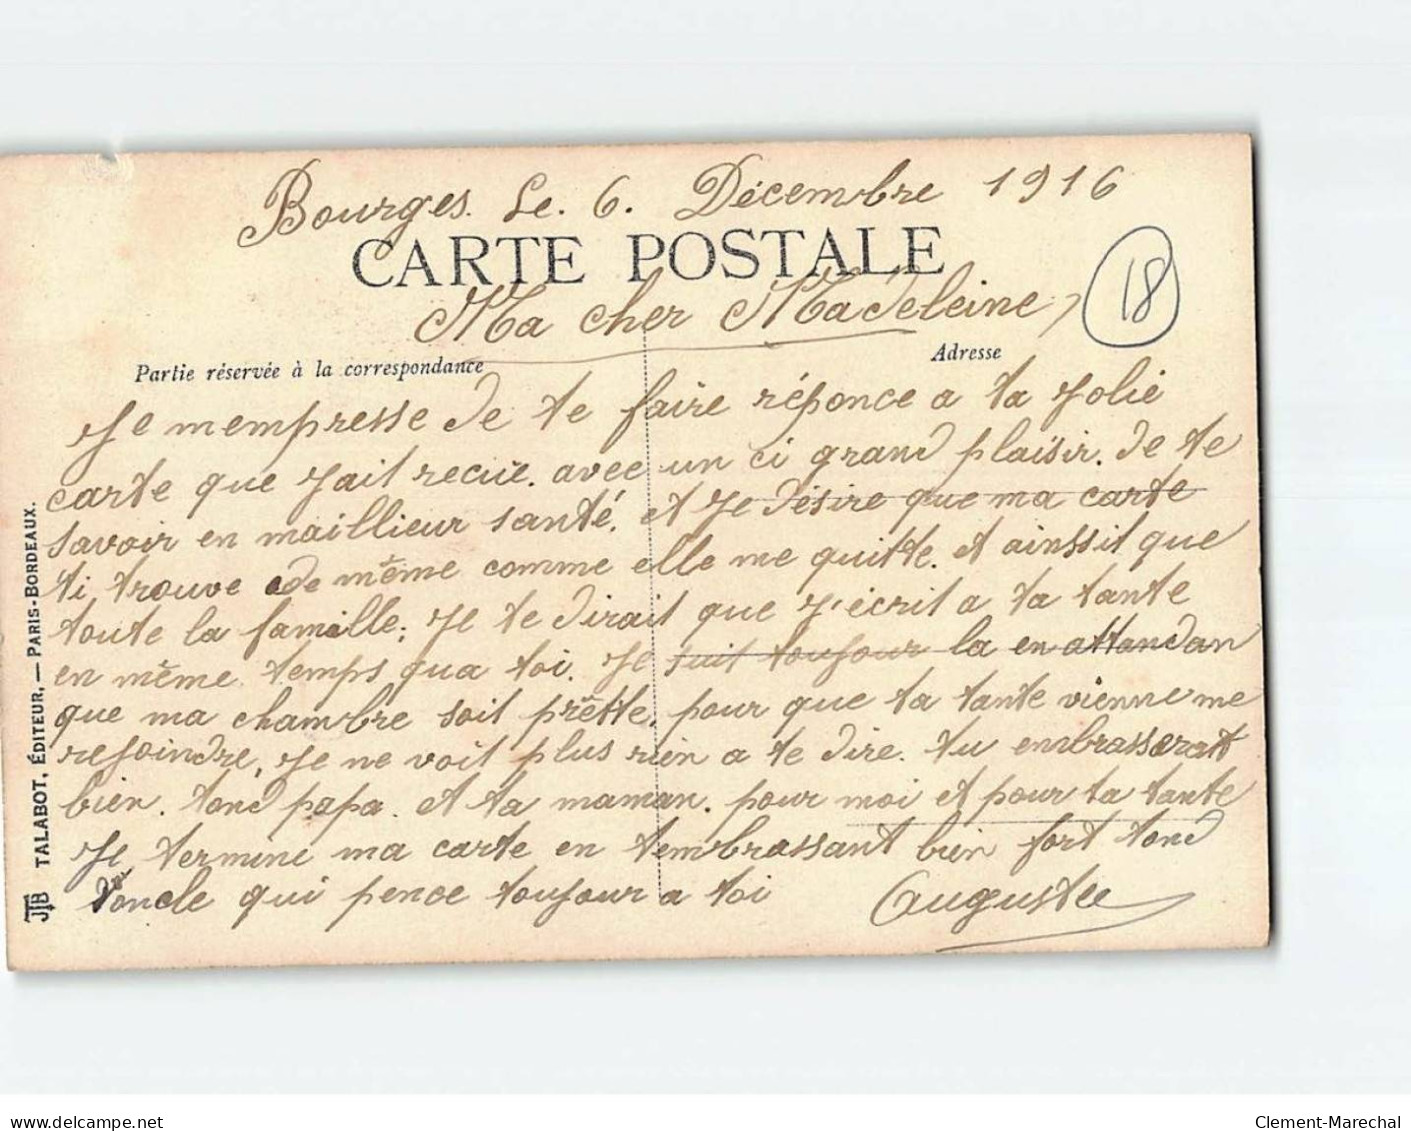 Bourges. Le. 6. Décembre 1916
CARTE POSTALE
18
Ma cher Madeleine,
Partie réservée à la correspondance
Adresse
Je mempresse de te faire réponce a ta jolie
carte que jait recue. avec un ci grand plaisir. de te
savoir en maillieur santé. et je désire que ma carte
ti trouve de même comme elle me quitte. et ainssit que
toute la famille; Je te dirait que j'écrit a ta tante
en même temps qua toi. Je suit toujour la en attandan
que ma chambre soit prètte, pour que ta tante vienne me
rejoindre, Je ne voit plus rien a te dire. tu embrasserat
bien. tond papa. et ta maman. pour moi et pour ta tante
Je termine ma carte en tembrassant bien fort tond
toncle qui pence toujour a toi Auguste
JTB TALABOT, ÉDITEUR, — PARIS-BORDEAUX.
delcampe.net
Clement-Marechal